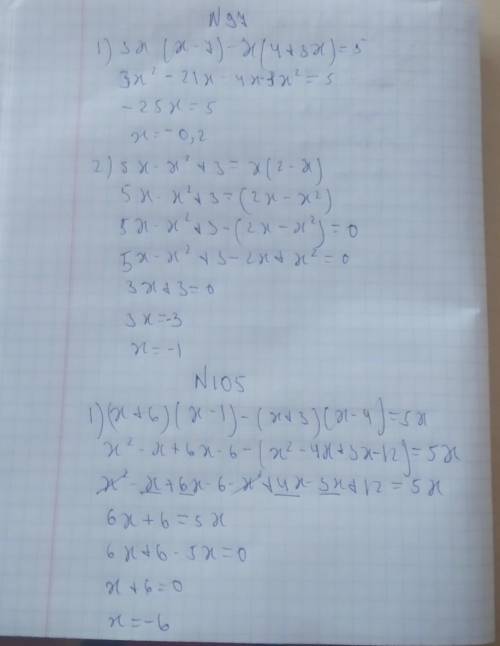 N97
1) 3x (x-7)-x(4+3x)=5
3x²-21x-4x-3x²=5
-25x=5
x=-0,2
2) 5x-x²+3=x(2-x)
5x-x²+3=(2x-x²)
5x-x²+3-(2x-x²)=0
5x-x²+3-2x+x²=0
3x+3=0
3x=-3
x=-1
N105
1)(x+6)(x-1)-(x+3)(x-4)=5x
x²-x+6x-6-(x²-4x+3x-12)=5x
x²-x+6x-6-x²+4x-3x+12=5x
6x+6=5x
6x+6-5x=0
x+6=0
x=-6